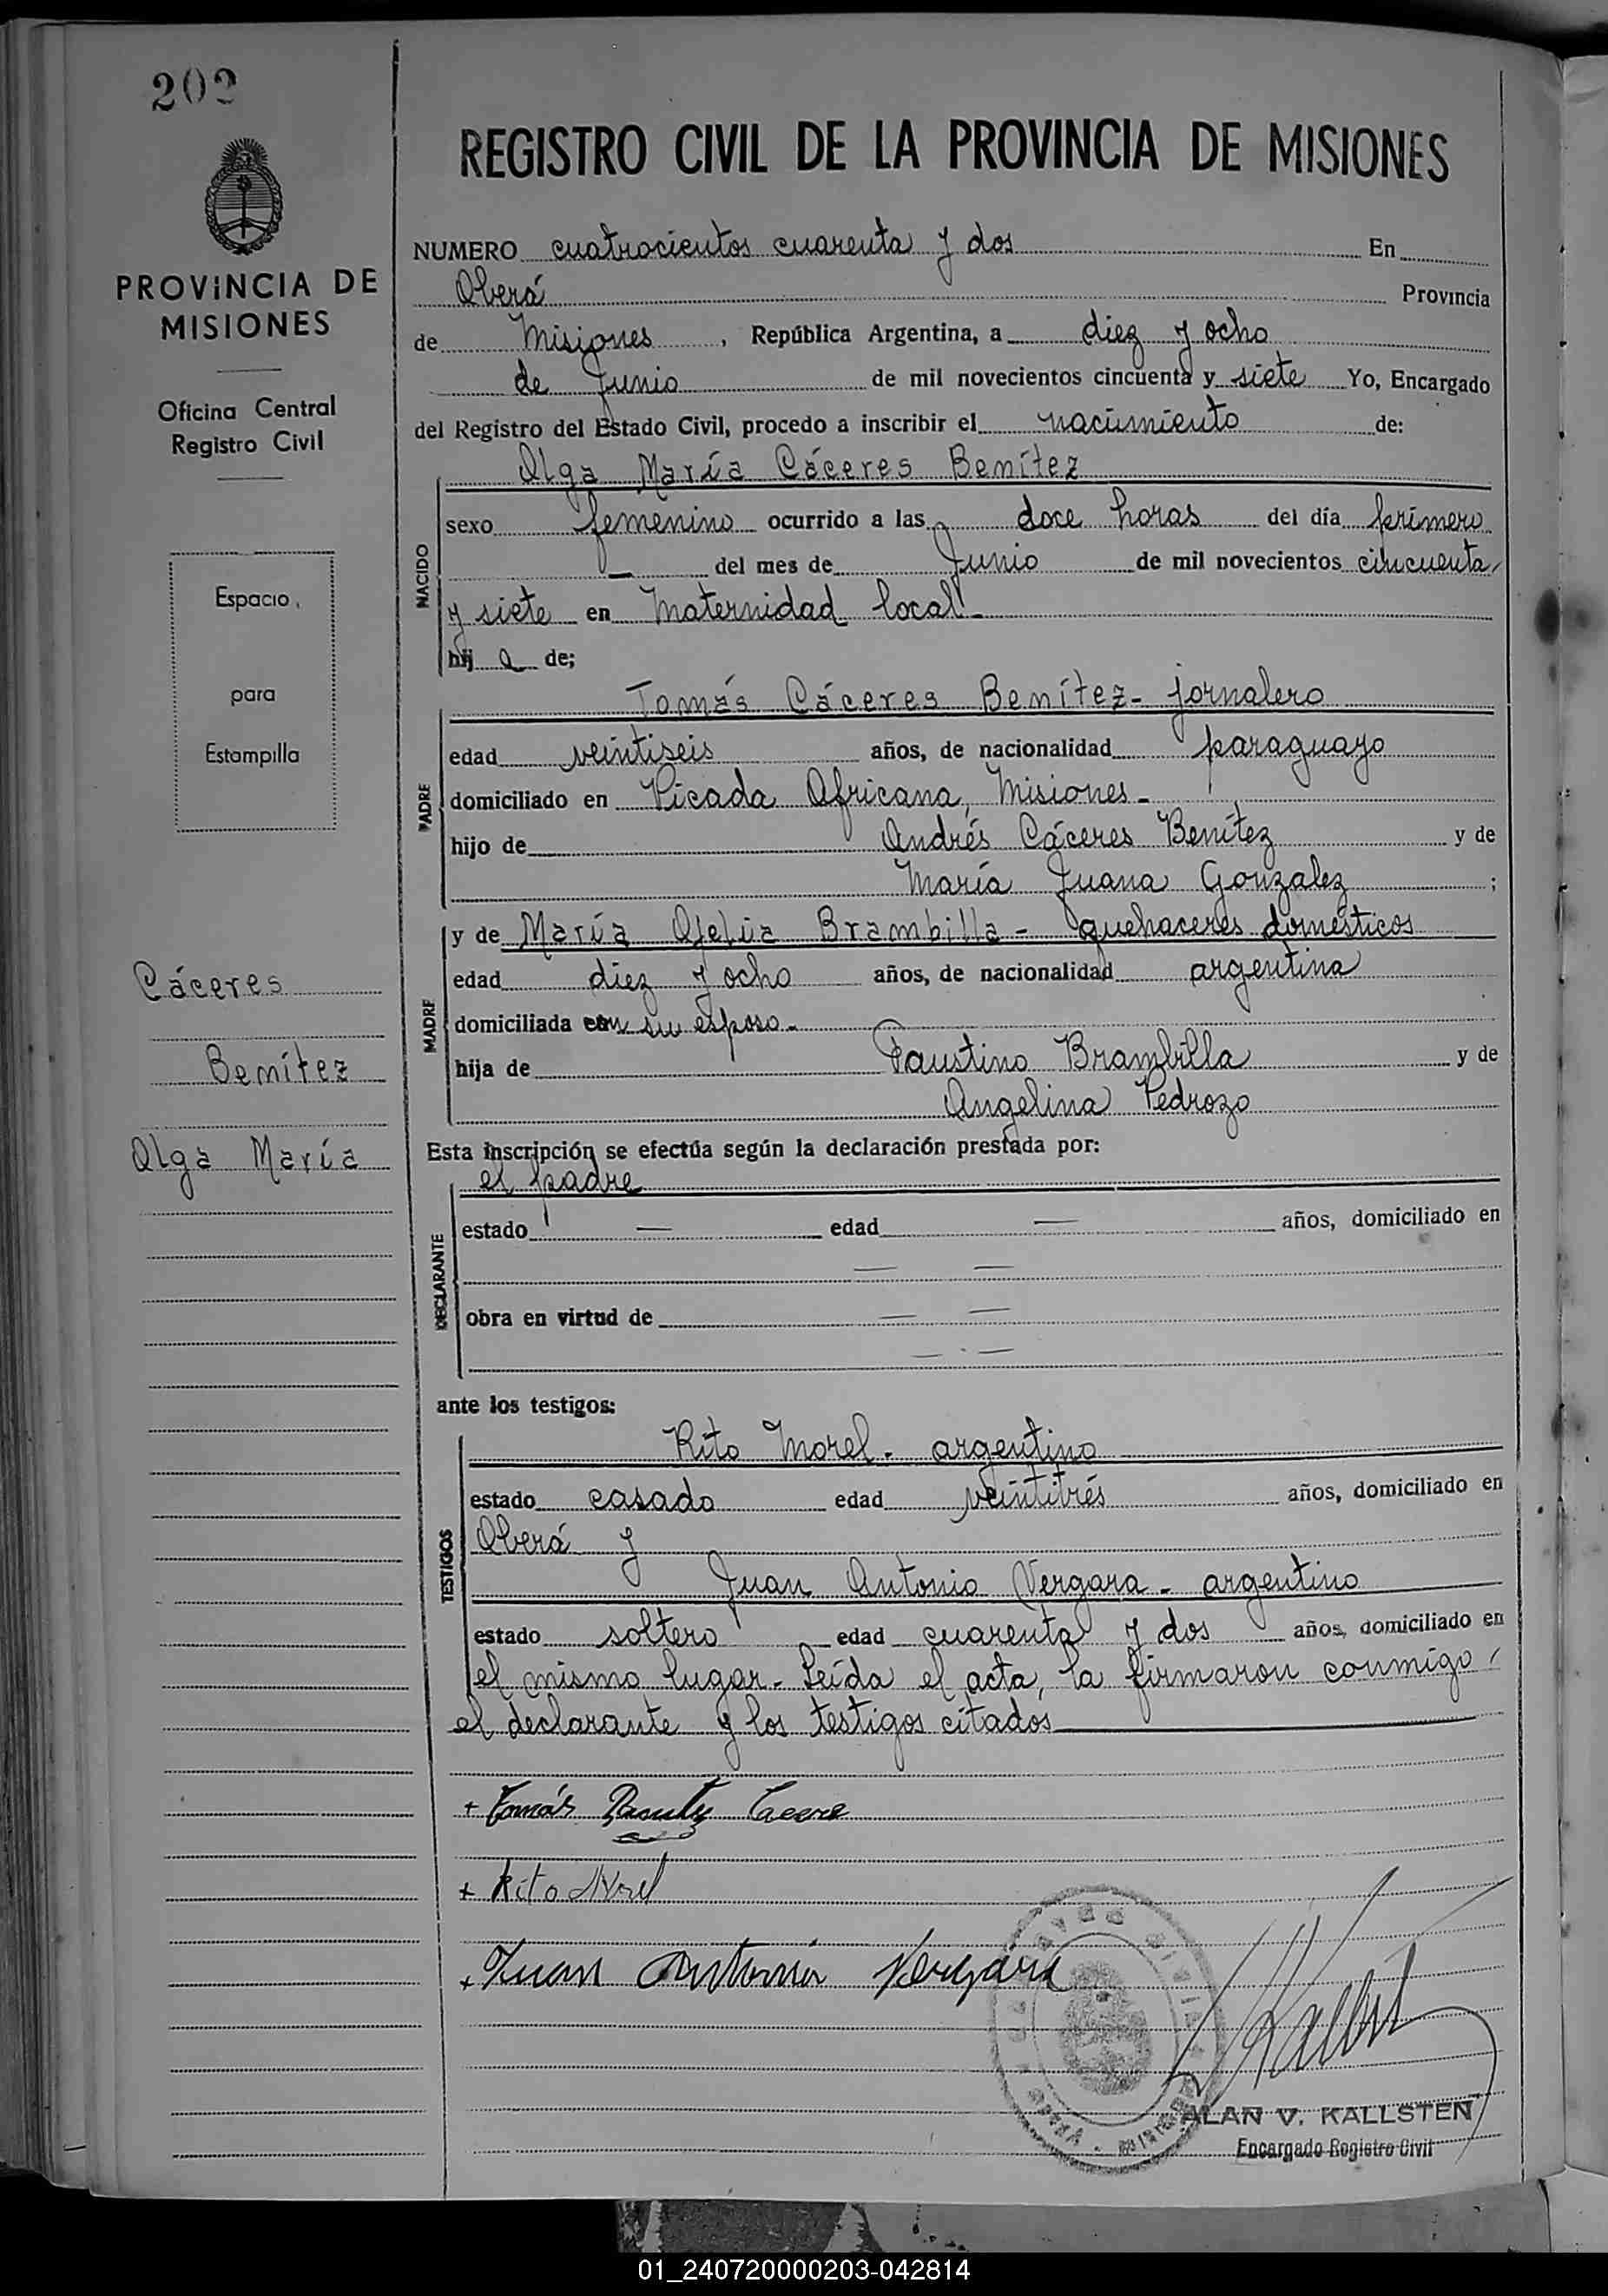 202
PROVINCIA DE
MISIONES
Oficina Central
Registro Civil
Espacio
para
Estampilla
Cáceres
Benítez
Olga María
REGISTRO CIVIL DE LA PROVINCIA DE MISIONES
NUMERO cuatrocientos cuarenta y dos En
Oberá Provincia
de Misiones, República Argentina, a diez y ocho
de Junio de mil novecientos cincuenta y siete Yo, Encargado
del Registro del Estado Civil, procedo a inscribir el nacimiento de:
Olga María Cáceres Benítez
NACIDO
sexo femenino ocurrido a las doce horas del día primero
— del mes de Junio de mil novecientos cincuenta
y siete en Maternidad local.-
hij a de;
PADRE
Tomás Cáceres Benítez- jornalero
edad veintiseis años, de nacionalidad paraguayo
domiciliado en Picada Africana, Misiones-
hijo de Andrés Cáceres Benítez y de
María Juana Gonzalez ;
MADRE
y de María Ofelia Brambilla - quehaceres domésticos
edad diez y ocho años, de nacionalidad argentina
domiciliada con su esposo-
hija de Faustino Brambilla y de
Angelina Pedrozo
Esta inscripción se efectúa según la declaración prestada por:
DECLARANTE
el padre
estado — edad — años, domiciliado en
— —
obra en virtud de — —
— . —
ante los testigos:
TESTIGOS
Rito Morel- argentino
estado casado edad veintitrés años, domiciliado en
Oberá y
Juan Antonio Vergara - argentino
estado soltero edad cuarenta y dos años, domiciliado en
el mismo lugar- Leída el acta, la firmaron conmigo
el declarante y los testigos citados
+ Tomás
+ Rito Morel
+ Juan Antonio Vergara
ALAN V. KALLSTEN
Encargado Registro Civil
01_240720000203-042814